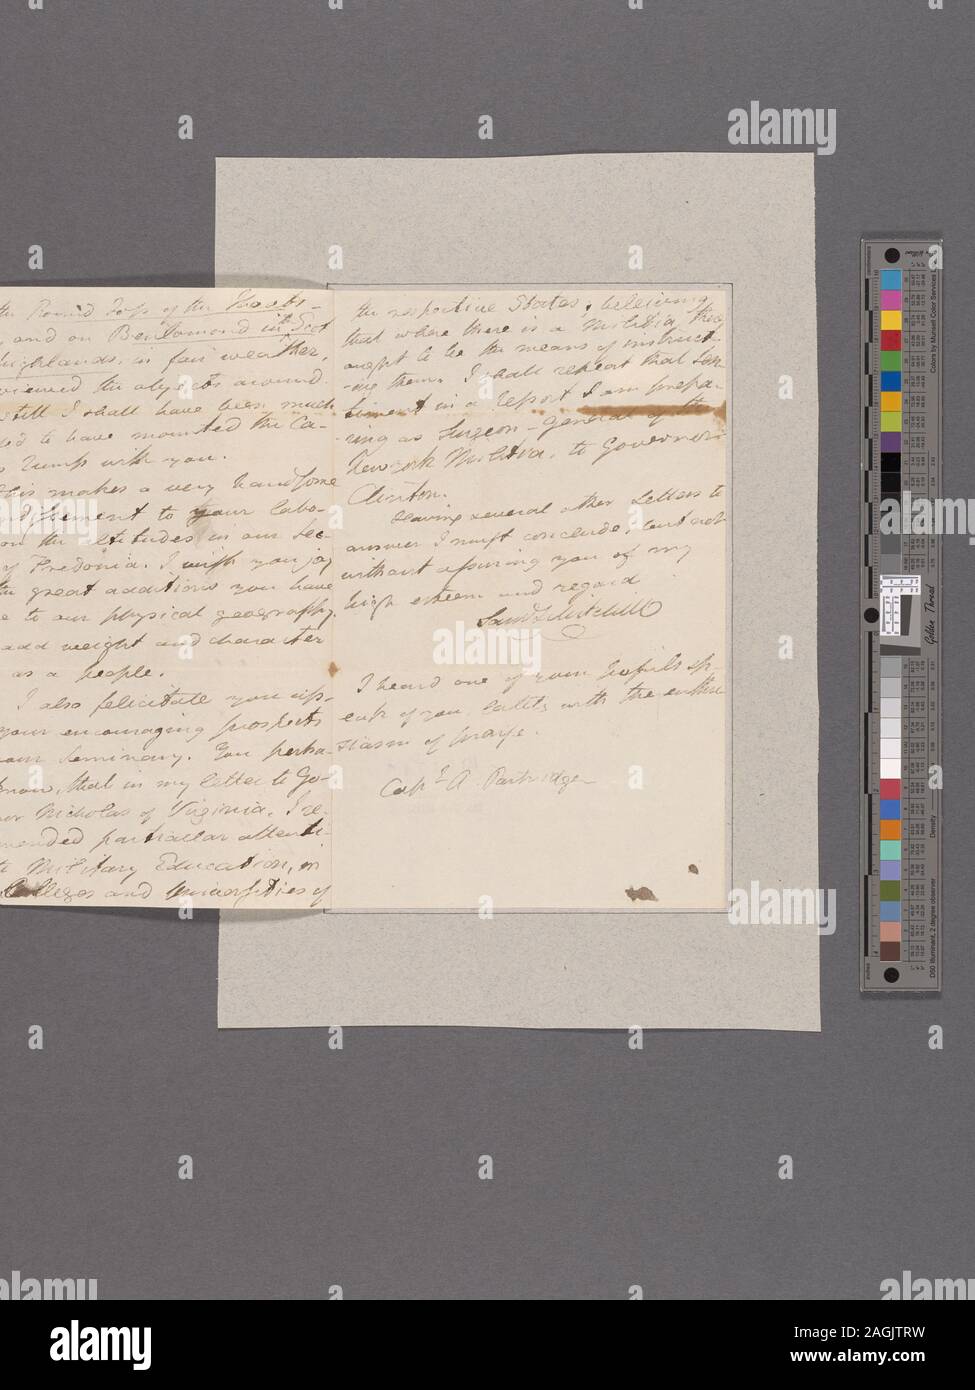 the Round Top of the
and on Benlomond in Scot
highlands, in fair weather,
viewed the objects around.
still I shall have been much
ed to have mounted the Ca-
Rump with you.
This makes a very handsome
to your labo-
on the altitudes in our Sec-
of Fredonia. I wish you joy
the great additions you have
e to our physical geography.
add weight and character
as a people.
I also felicitate you up-
your encouraging prospects
our Seminary. You perha-
know, that in my letter to Go-
nor Nicholas of Virginia, I re-
mended particular attenti-
to Military Education, in
Colleges and Universities of
the respective States, believing
that where there is a Militia, there
ought to be the means of instruct-
-ing them. I shall repeat that Sen-
timent in a report I am prepa-
ring as Surgeon-general of the
New York Militia, to Governor
Clinton.
Having several other letters to
answer I must conclude, but not
without assuring you of my
high esteem and regard
Saml L Mitchill
I heard one of your pupils sp-
eak of you, lately, with the enthu
siasm of praise.
Capt A Partridge
inches
D50 Illuminant, 2 degree observer
Density
Golden Thread
Colors by Munsell Color Services Lab
a alamy
alamy
Image ID: 2AGJTRW
www.alamy.com